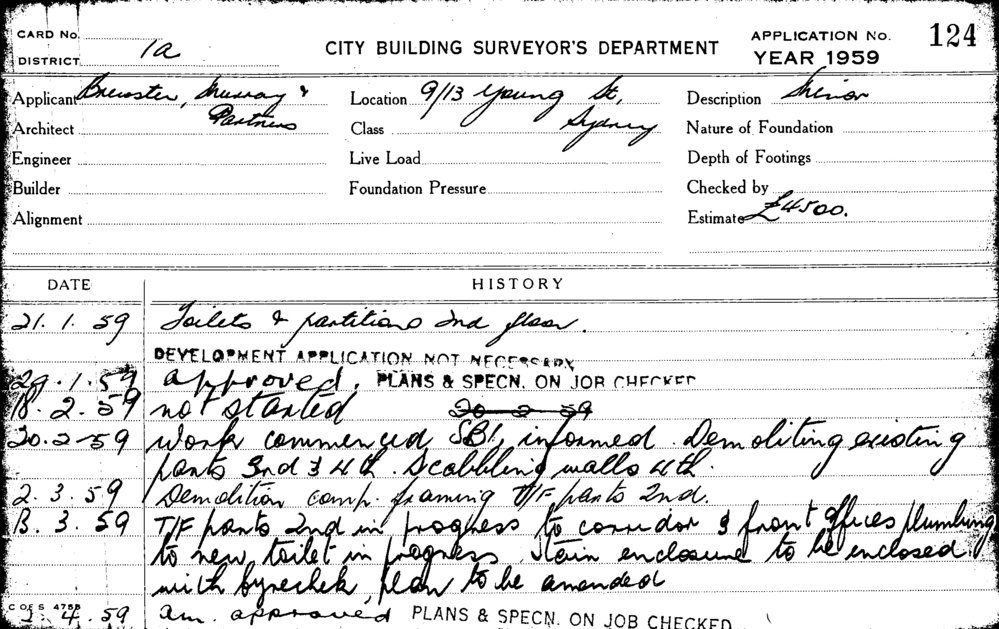 CARD No.
DISTRICT 1a
CITY BUILDING SURVEYOR'S DEPARTMENT
APPLICATION No. 124
YEAR 1959
Applicant Brewster, Murray &
Partners
Location 9/13 Young St,
Sydney
Description Minor
Architect
Class
Nature of Foundation
Engineer
Live Load
Depth of Footings
Builder
Foundation Pressure
Checked by
Alignment
Estimate £4500.
DATE HISTORY
21. 1. 59 Toilets & partitions 2nd floor.
DEVELOPMENT APPLICATION NOT NECESSARY
29. 1. 59 approved. PLANS & SPECN. ON JOB CHECKED
18. 2. 59 not started 20 2 59
20. 2 59 work commenced SBI, informed. Demoliting existing
parts 3nd & 4th. Scabbling walls 4th.
2. 3. 59 Demolition comp. framing T/F parts 2nd.
13. 3. 59 T/F parts 2nd in progress to corridor & front offices plumbing
to new toilet in progress. Stair enclosure to be enclosed
with plan to be amended
COFS 4755
2. 4. 59 am. approved PLANS & SPECN. ON JOB CHECKED